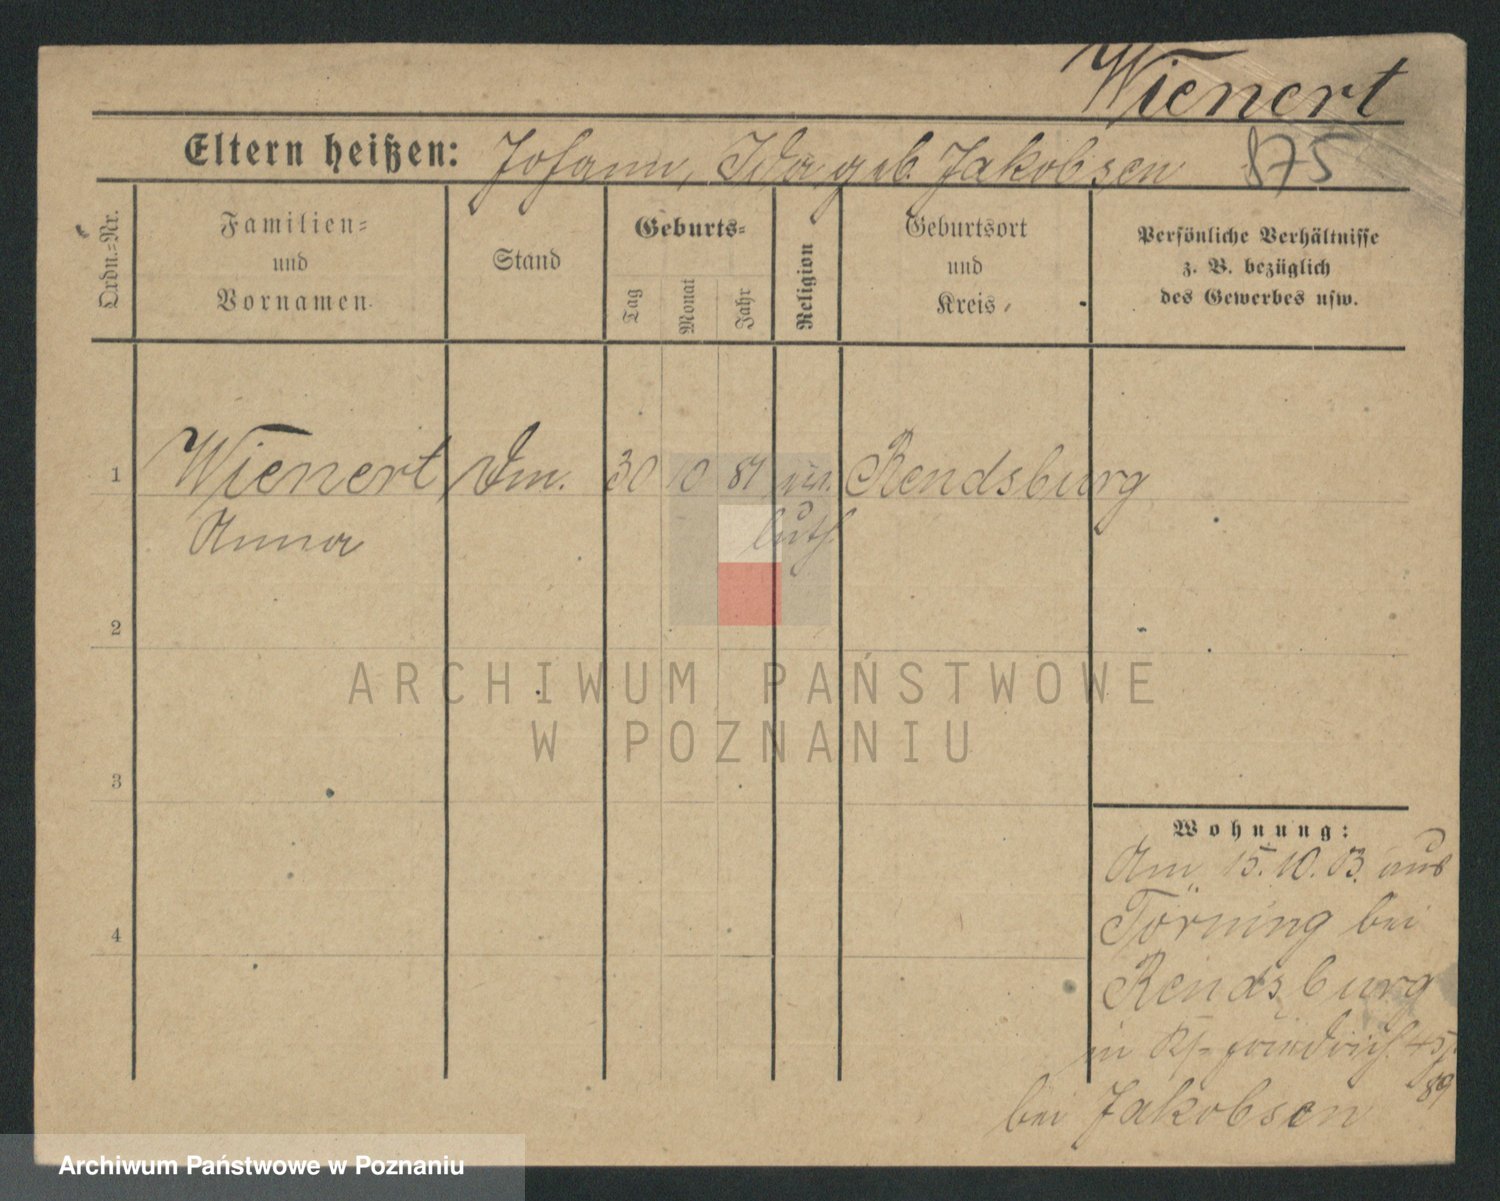 Wienert
Eltern heißen: Johann, Ida geb. Jakobsen 875
Ordn.=Nr.
Familien=
und
Vornamen.
Stand
Geburts=
Tag
Monat
Jahr
Religion
Geburtsort
und
Kreis
Persönliche Verhältnisse
z. B. bezüglich
des Gewerbes usw.
1 Wienert 30 10 81 Rendsburg
Anna luth.
2
3
4
ARCHIWUM PAŃSTWOWE
W POZNANIU
Wohnung:
Am 15. 10. 03. aus
Törning bei
Rendsburg
in
bei Jakobsen
Archiwum Państwowe w Poznaniu